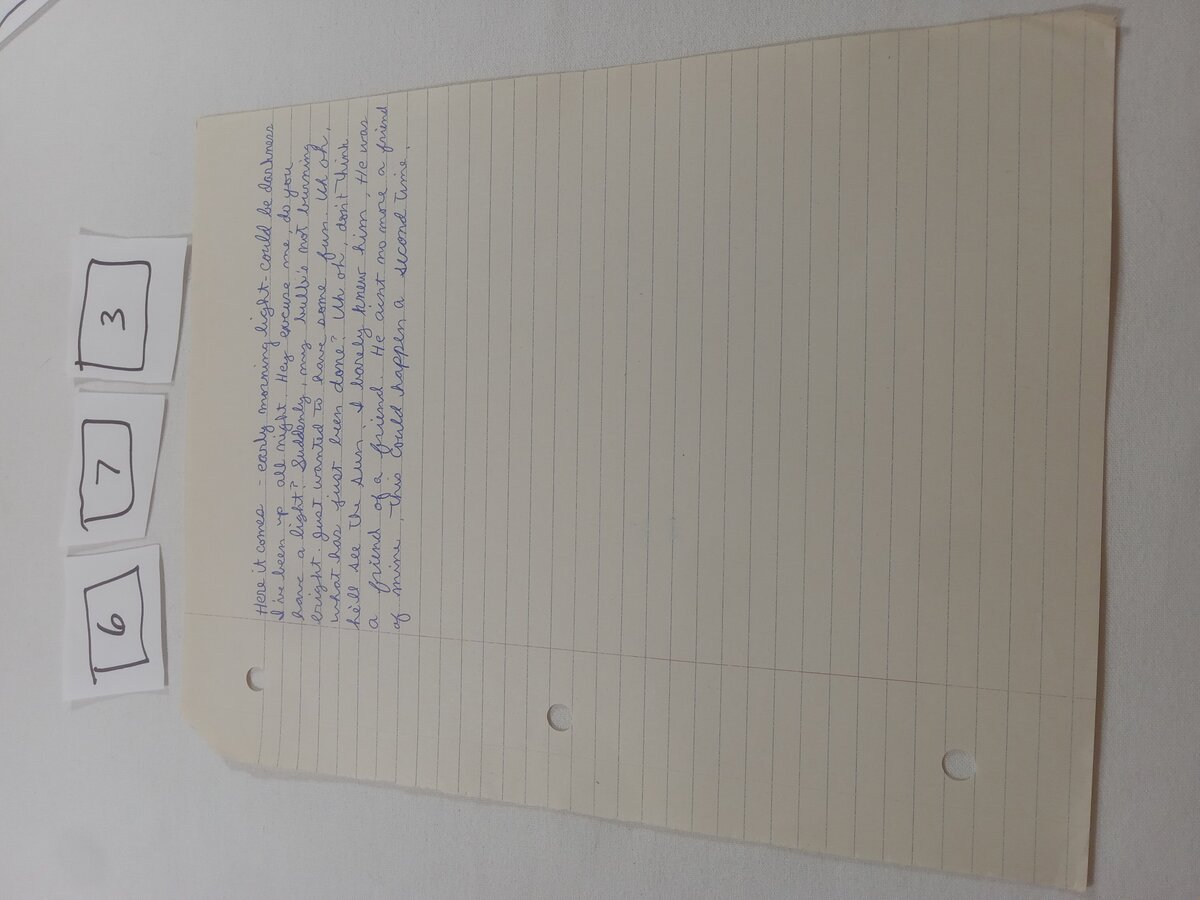 6 7 3
Here it comes - early morning light - could be darkness
I've been up all night. Hey excuse me, do you
have a light? Suddenly, my bulb's not burning
bright. Just wanted to have some fun. Uh oh,
what has just been done? Uh oh, don't think
he'll see the sun. I barely knew him, He was
a friend of a friend. He ain't no more a friend
of mine. This could happen a second time.